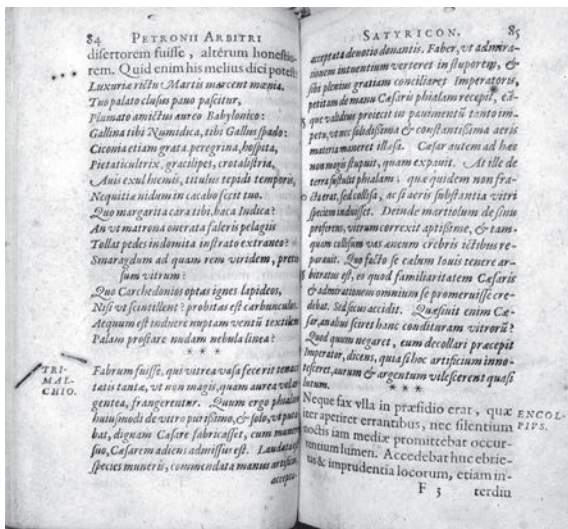 84 PETRONII ARBITRI
disertorem fuisse, alterum honestio-
rem. Quid enim his melius dici potest?
Luxuriæ rictu Martis marcent mœnia.
Tuo palato clusus pauo pascitur,
Plumato amictus aureo Babylonico:
Gallina tibi Numidica, tibi Gallus spado:
Ciconia etiam grata, peregrina, hospita,
Pietaticultrix, gracilipes, crotalistria,
Auis exul hiemis, titulus tepidi temporis,
Nequitiæ nidum in cacabo fecit tuo.
Quo margarita cara tibi, baca Indica?
An vt matrona onerata faleris pelagiis
Tollat pedes indomita in strato extraneo?
Smaragdum ad quam rem viridem, preti
sum vitrum?
Quo Carchedonios optas ignes lapideos,
Nisi vt scintillent? probitas est carbunculus.
Æquum est induere nuptam ventū textilem
Palam prostare nudam nebula linea?
* * *
TRI-
MAL-
CHIO.
Fabrum fuisse, qui vitrea vasa fecerit tenaci
tatis tantæ, vt non magis, quam aurea vel ar
gentea, frangerentur. Quum ergo phialam
huiusmodi de vitro purissimo, & solo, vt puta
bat, dignam Cæsare fabricasset, cum munere
suo, Cæsarem adiens admissus est. Laudata est
species muneris, commendata manus artificis,
accepta
SATYRICON. 85
acceptata deuotio donantis. Faber, vt admira-
tionem intuentium verteret in stuporem, &
sibi plenius gratiam conciliaret Imperatoris,
petitam de manu Cæsaris phialam recepit, eá-
que validius proiecit in pauimentū tanto im-
petu, vt nec solidissima & constantissima aeris
materia maneret illæsa. Cæsar autem ad hæc
non magis stupuit, quam expauit. At ille de
terra sustulit phialam: quæ quidem non fra-
cta erat, sed collisa, ac si aeris substantia vitri
speciem induisset. Deinde martiolum de sinu
proferens, vitrum correxit aptissime, & tam-
quam collisum vas æneum crebris ictibus re-
parauit. Quo facto se cælum Iouis tenere ar-
bitratus est, eo quod familiaritatem Cæsaris
& admirationem omnium se promeruisse cre-
debat. Sed secus accidit. Quæsiuit enim Cæ-
sar, an alius sciret hanc condituram vitrorū?
Quod quum negaret, eum decollari præcepit
Imperator, dicens, quia si hoc artificium inno-
tesceret, aurum & argentum vilescerent quasi
lutum.
* * *
Neque fax vlla in præsidio erat, quæ
ENCOL-
PIVS.
iter aperiret errantibus, nec silentium
noctis iam mediæ promittebat occur-
rentium lumen. Accedebat huc ebrie-
tas & imprudentia locorum, etiam in-
F 3 terdiu